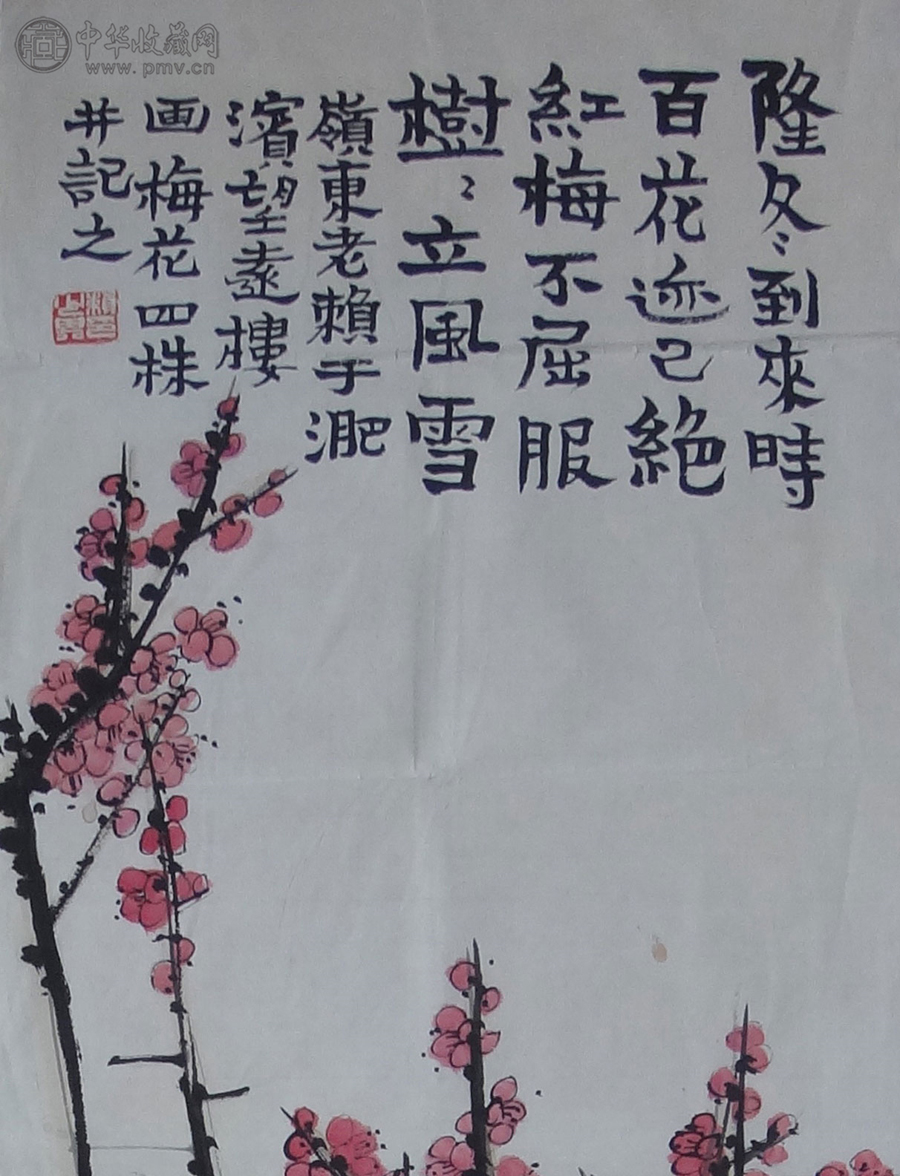 中华收藏网
www.pmv.cn
隆冬到來時
百花迹已絶
紅梅不屈服
樹〻立風雪
嶺東老賴于淝
濱望遠樓
画梅花四株
并記之